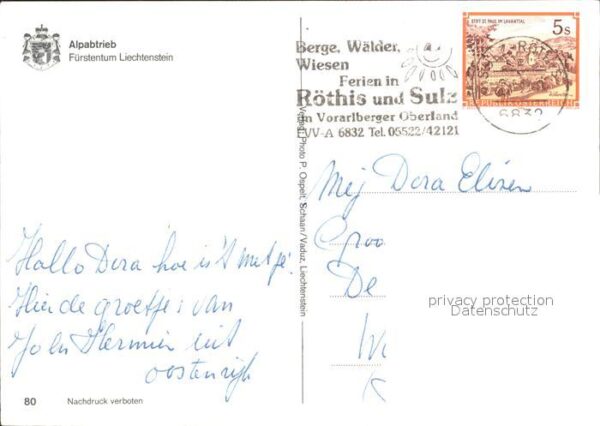 Alpabtrieb
Fürstentum Liechtenstein
Berge, Wälder,
Wiesen
Ferien in
Röthis und Sulz
im Vorarlberger Oberland
VV-A 6832 Tel. 05522/42121
STIFT ST. PAUL IM LAVANTTAL
5s
REPUBLIK ÖSTERREICH
6832
Verlag Photo P. Ospelt, Schaan/Vaduz, Liechtenstein
Mej Dora
Groo
De
privacy protection
Datenschutz
Hallo Dora hoe is 't met je.
Hier de groetjes van
Joh Hermien uit
oostenrijk
80
Nachdruck verboten